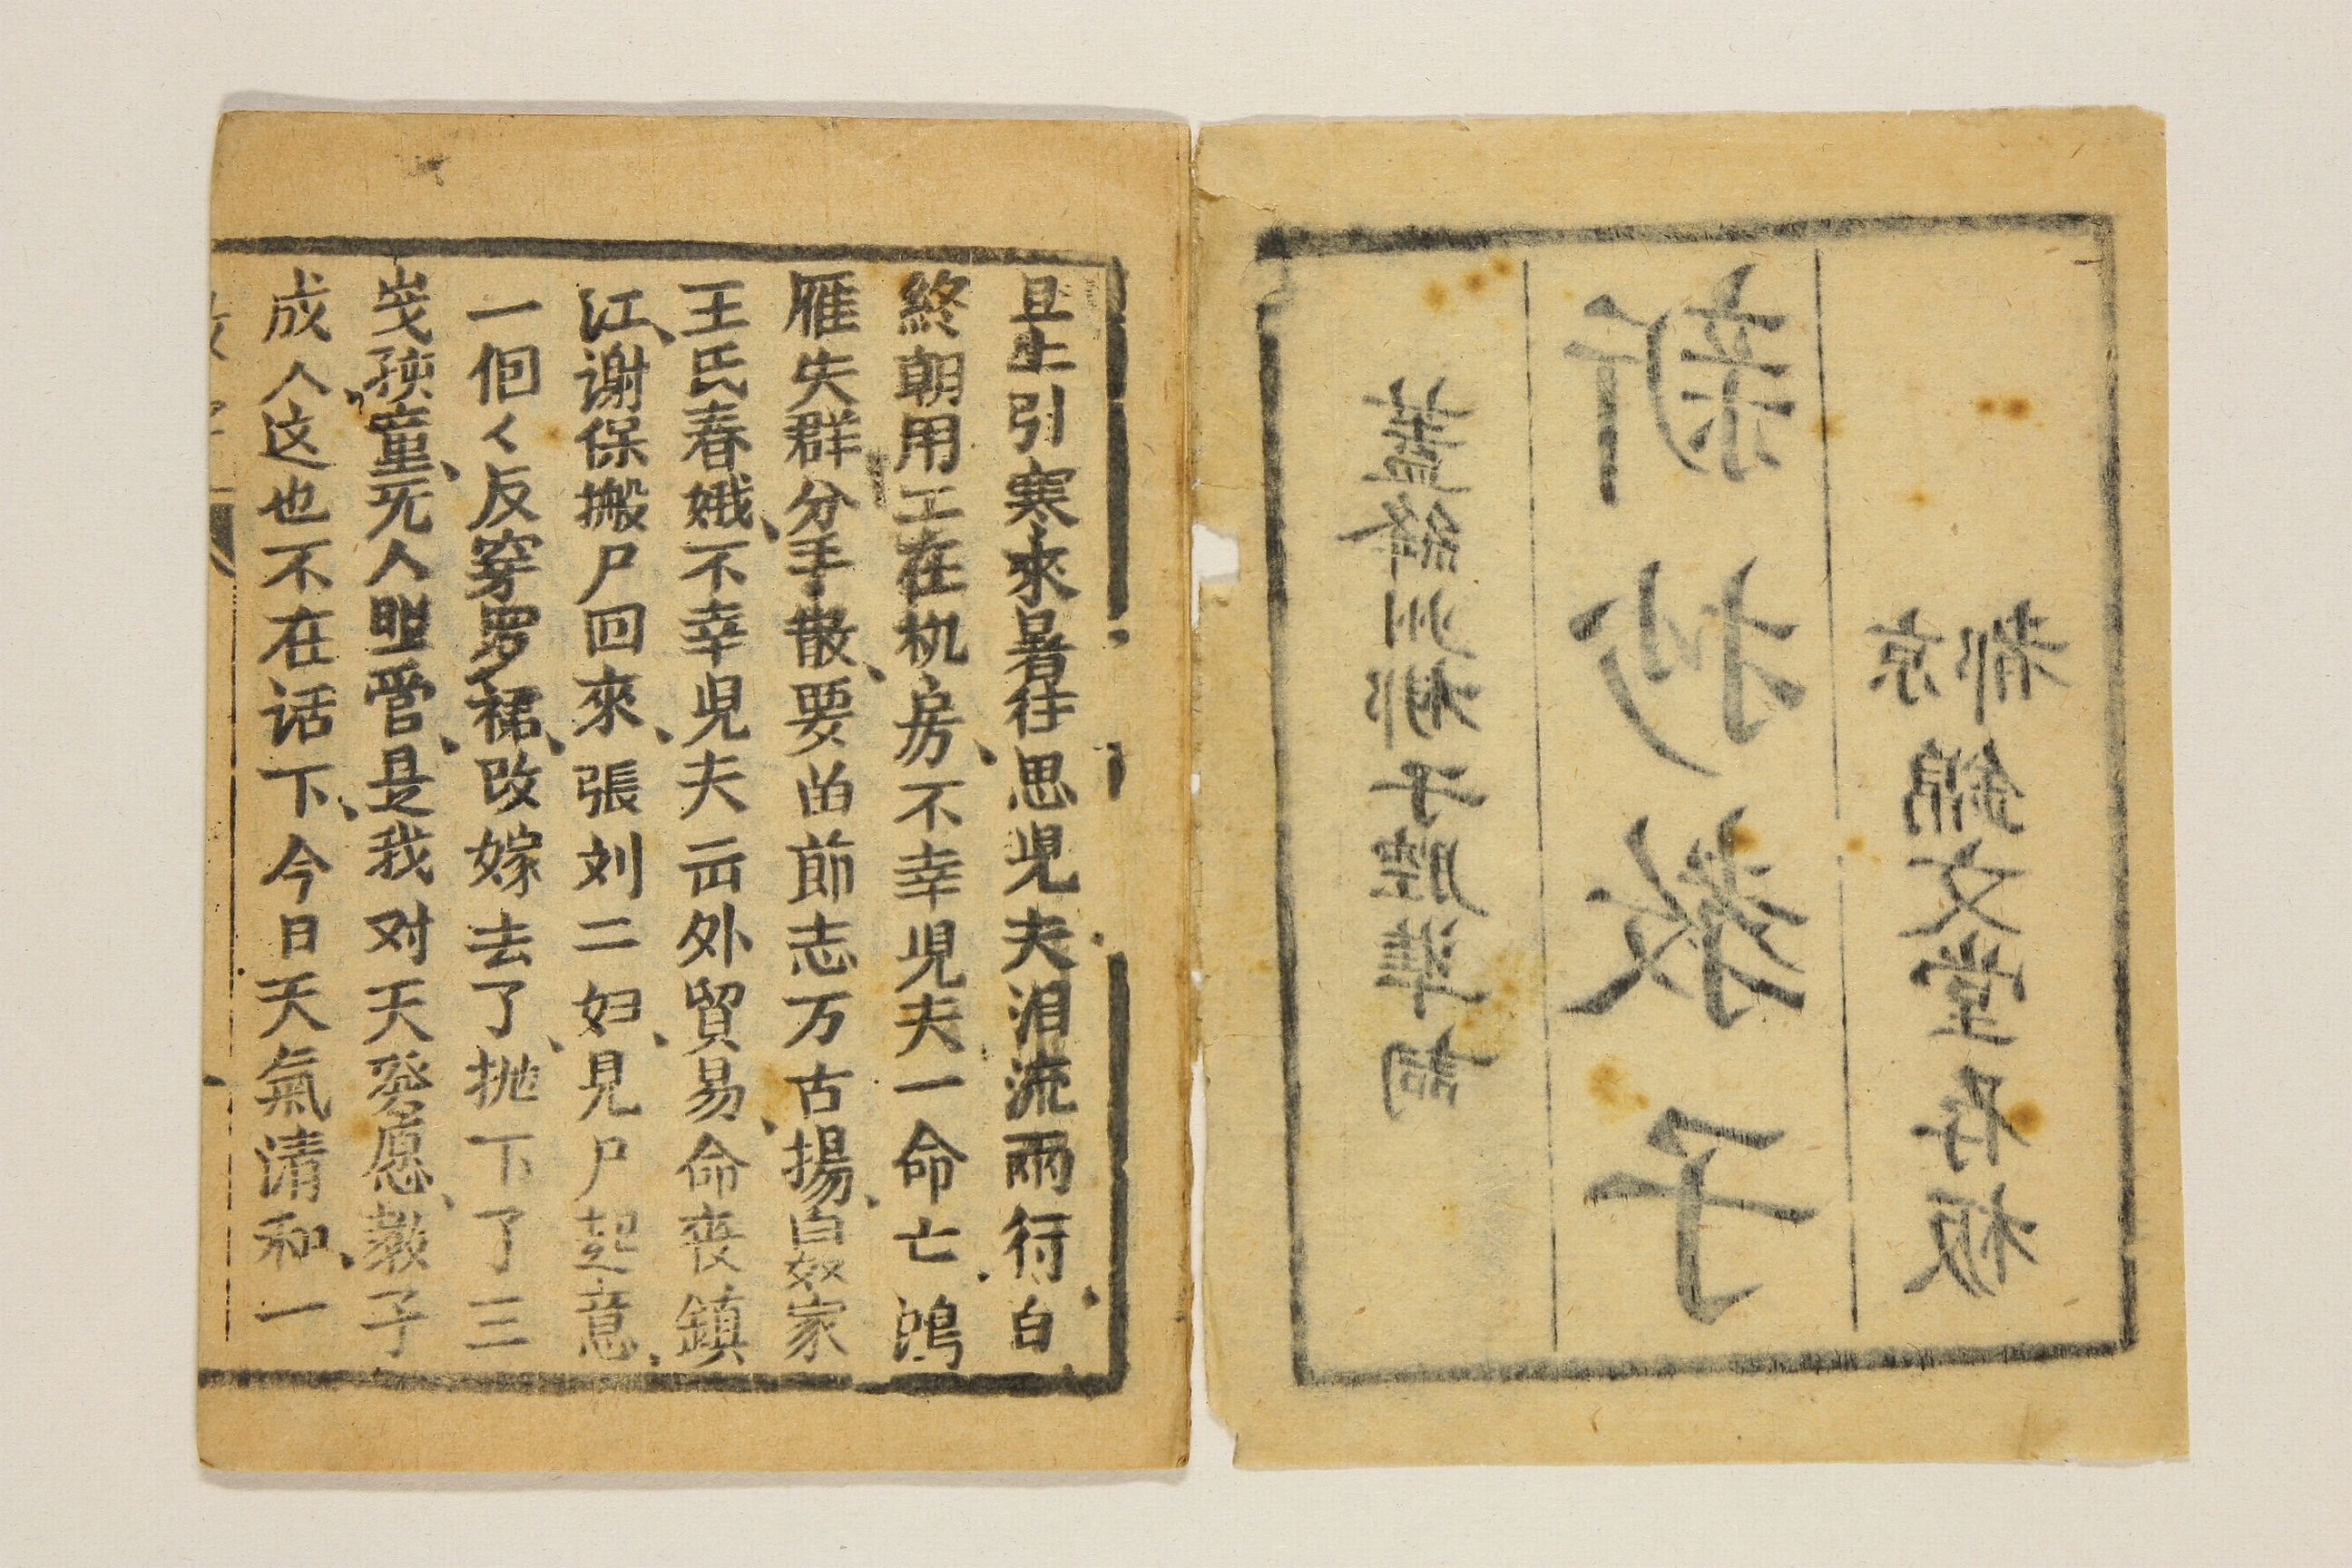 京都錦文堂存板
新抄教子
蓋絳州梆子腔準詞
旦上引寒來暑往思児夫泪流兩行白
終朝用工在机房、不幸児夫一命亡、鴻
雁失群分手散、要畄節志万古揚、白奴家
王氏春娥、不幸児夫出外貿易、命喪鎮
江、謝保搬尸回來、張刘二妇、見尸起意、
一個く反穿罗裙、改嫁去了、抛下了三
岁孩童、无人照管、是我对天發愿、教子
成人、这也不在话下、今日天氣清和、一